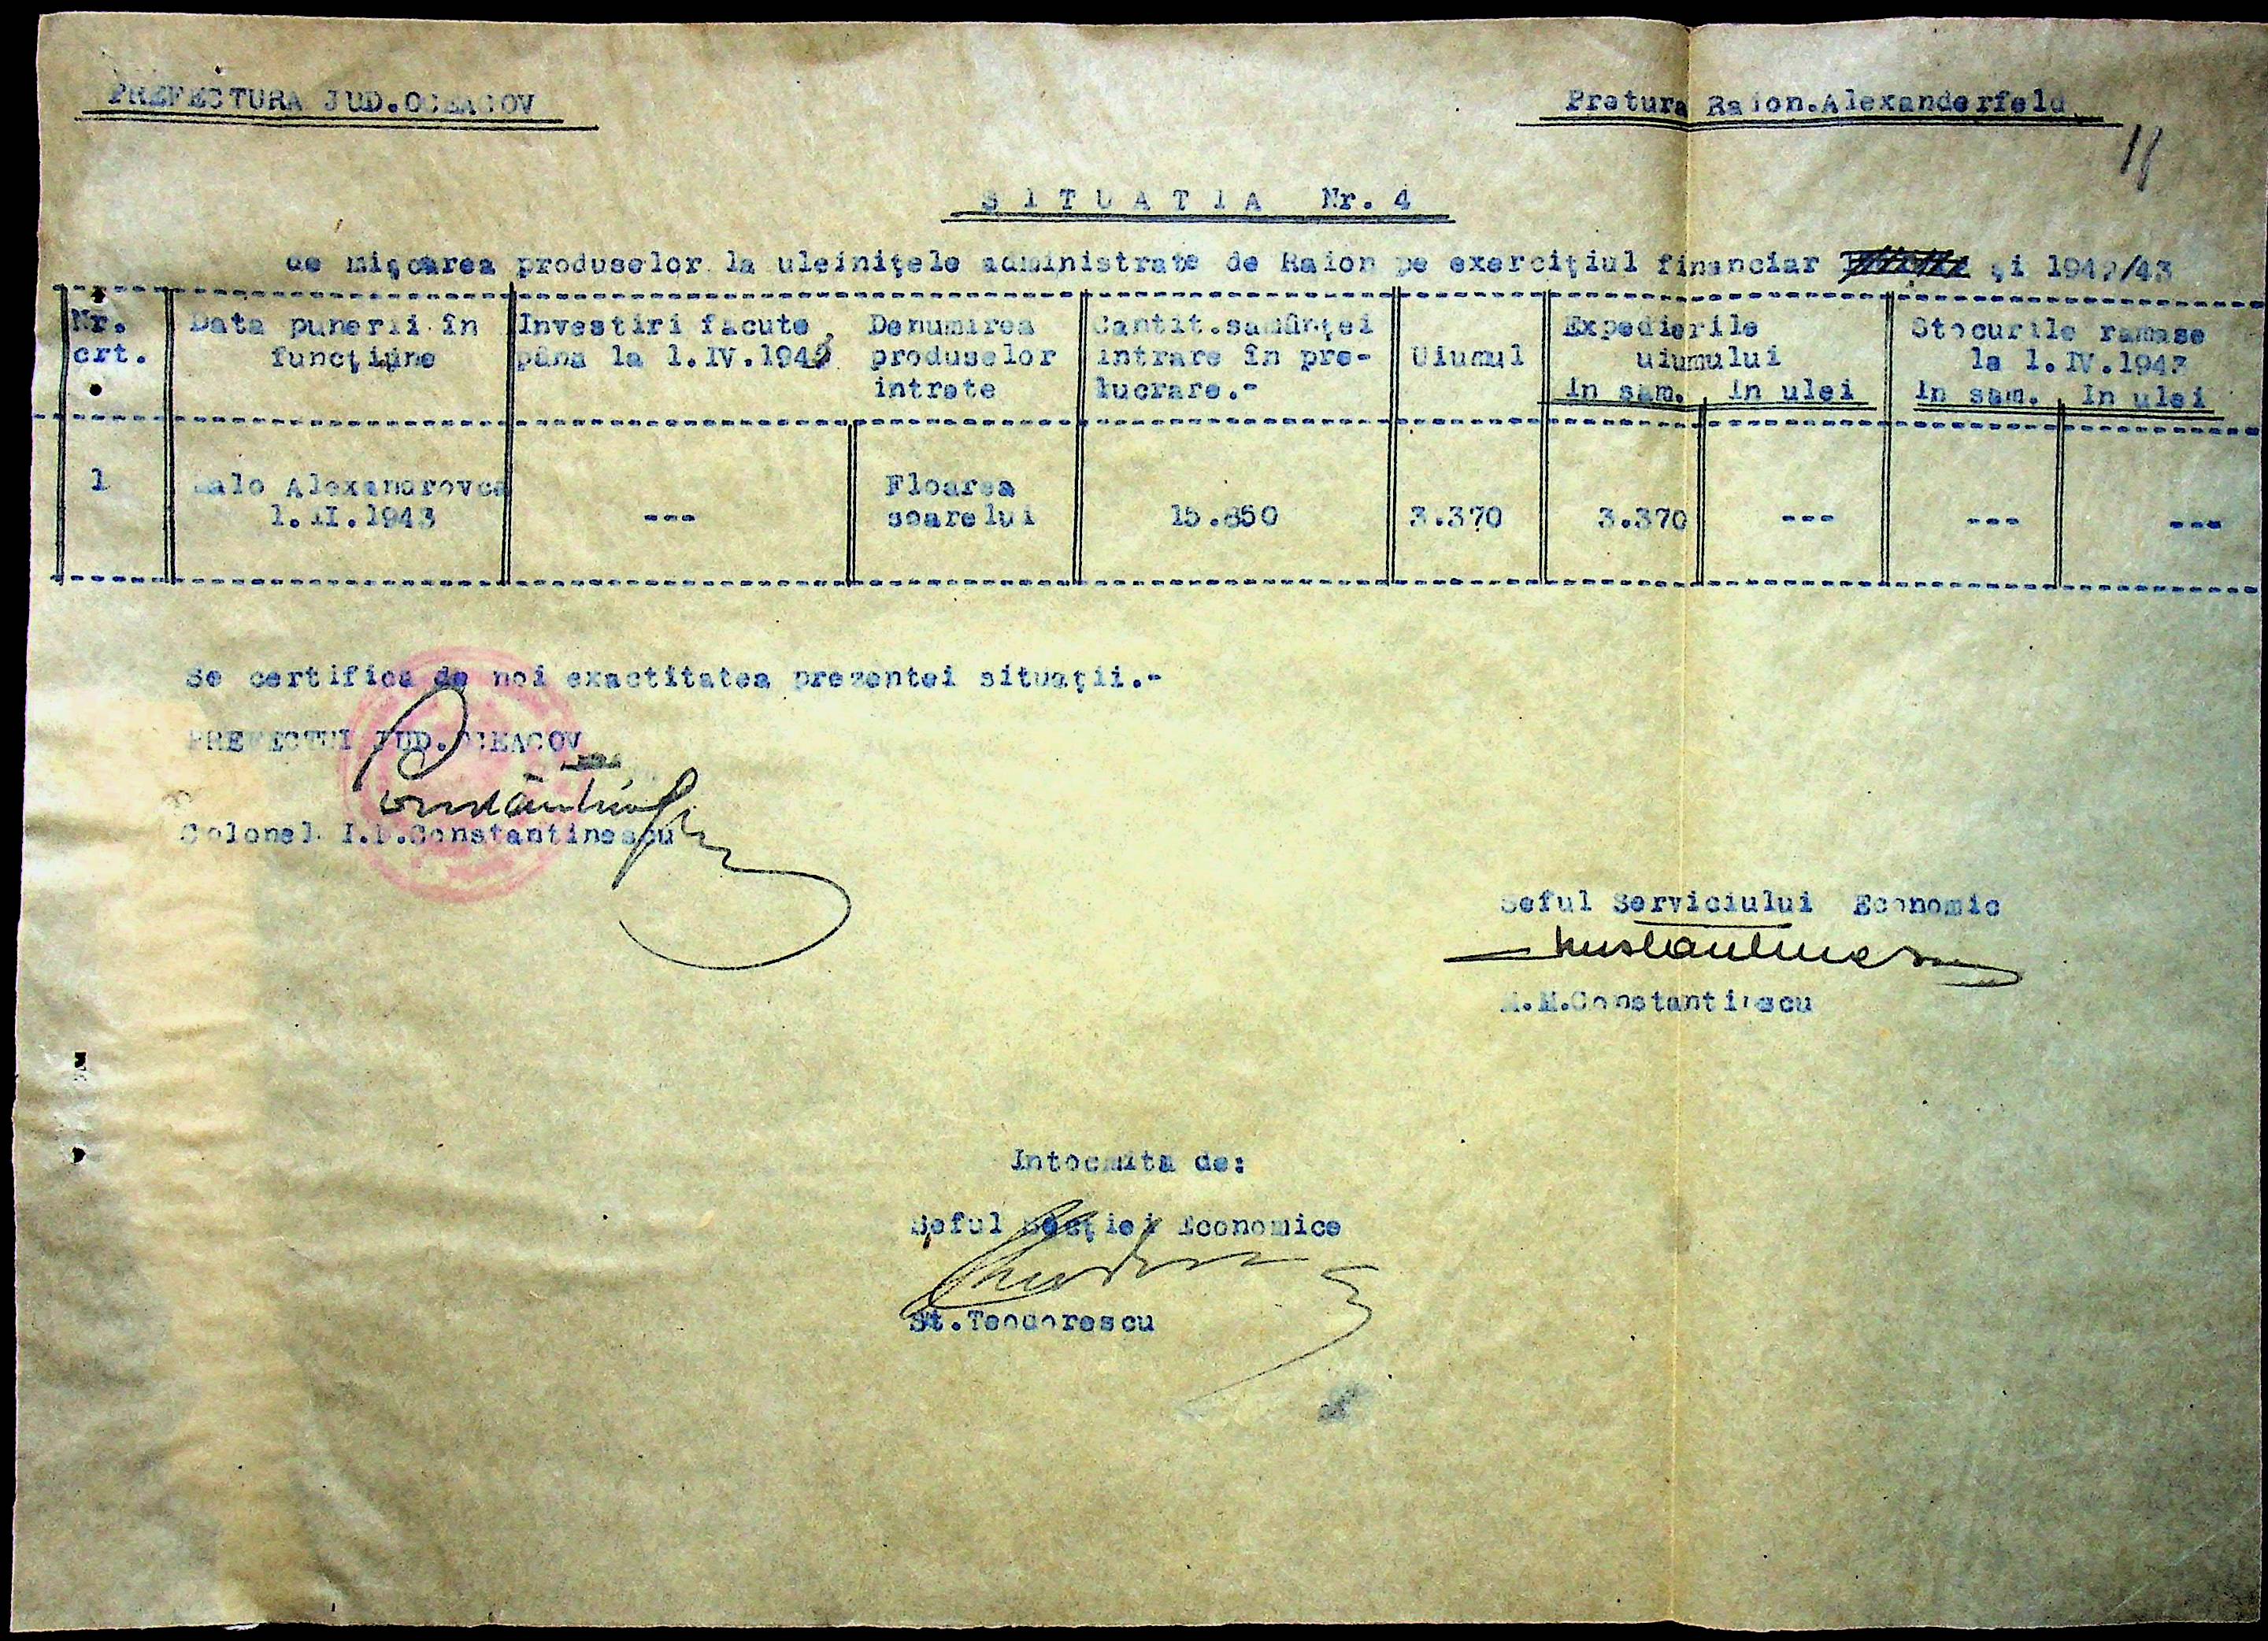 PREFECTURA JUD.OCEACOV
Pretura Raion.Alexanderfeld
11
SITUATIA Nr. 4
de mişcarea produselor la uleiniţele administrate de Raion pe exerciţiul financiar şi 1942/43
Nr. crt.
Data punerii în funcţiune
Investiri facute pâna la 1.IV.194
Denumirea produselor intrate
Cantit.samânţei intrare în pre-lucrare.-
Uiumul
Expedierile uiumului
in sam. in ulei
Stocurile ramase la 1.IV.1943
in sam. in ulei
1
Malo Alexandrovca 1.II.1943
---
Floarea soarelui
15.850
3.370
3.370
---
---
---
Se certifica de noi exactitatea prezentei situaţii.-
PREFECTUL JUD.OCEACOV
Colonel I.D.Constantinescu
Seful Serviciului Economic
M.Constantinescu
Intocmita de:
Şeful Secţiei Economice
St.Teodorescu